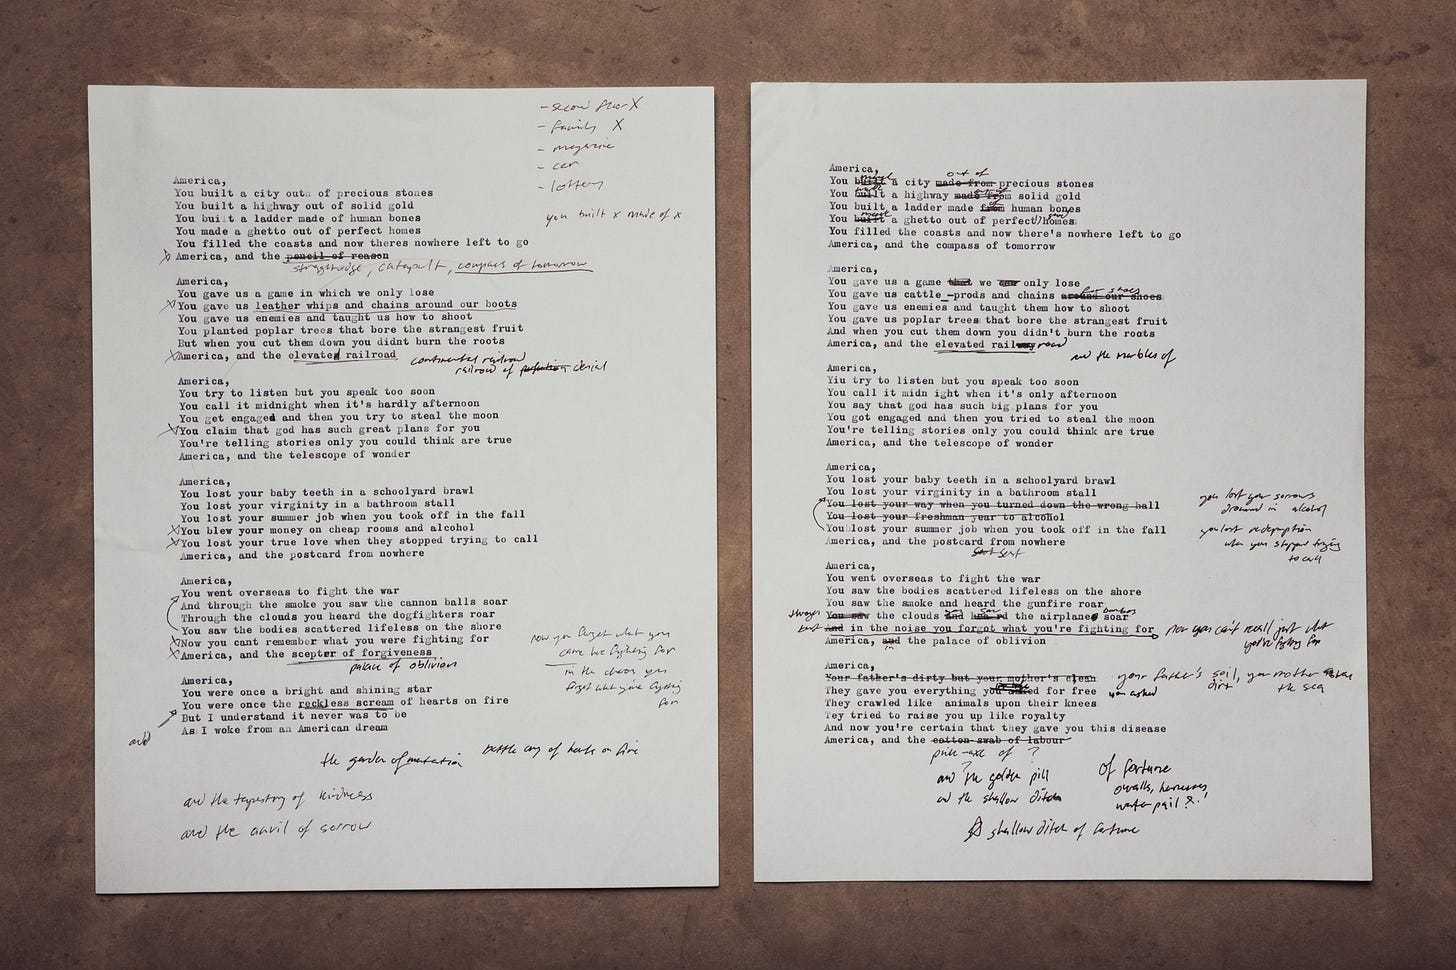 - second floor X
- family X
- magazine
- car
- lottery
you built x made of x
America,
You built a city outn of precious stones
You built a highway out of solid gold
You built a ladder made of human bones
You made a ghetto out of perfect homes
You filled the coasts and now theres nowhere left to go
X America, and the pencil of reason
straightedge, catapult, compass of tomorrow
America,
You gave us a game in which we only lose
X You gave us leather whips and chains around our boots
You gave us enemies and taught us how to shoot
You planted poplar trees that bore the strangest fruit
But when you cut them down you didnt burn the roots
X America, and the elevated railroad
continental railroad
railroad of denial
America,
You try to listen but you speak too soon
You call it midnight when it's hardly afternoon
You get engaged and then you try to steal the moon
X You claim that god has such great plans for you
You're telling stories only you could think are true
America, and the telescope of wonder
America,
You lost your baby teeth in a schoolyard brawl
You lost your virginity in a bathroom stall
You lost your summer job when you took off in the fall
X You blew your money on cheap rooms and alcohol
X You lost your true love when they stopped trying to call
America, and the postcard from nowhere
America,
You went overseas to fight the war
And through the smoke you saw the cannon balls soar
Through the clouds you heard the dogfighters roar
You saw the bodies scattered lifeless on the shore
X Now you cant remember what you were fighting for
X America, and the scepter of forgiveness
palace of oblivion
now you forget what you
were fighting for
in the chaos you
forgot what you're fighting
for
America,
You were once a bright and shining star
You were once the reckless scream of hearts on fire
But I understand it never was to be
and
As I woke from an American dream
the garden of mutation
battle cry of hearts on fire
and the tapestry of kindness
and the anvil of sorrow
America,
out of
You built a city made from precious stones
You built a highway made from solid gold
You built a ladder made from human bones
You built a ghetto out of perfect homes
You filled the coasts and now there's nowhere left to go
America, and the compass of tomorrow
America,
You gave us a game that we can only lose
for shoes
You gave us cattle_-prods and chains around our shoes
You gave us enemies and taught them how to shoot
You gave us poplar trees that bore the strangest fruit
And when you cut them down you didn't burn the roots
America, and the elevated railroad
and the marbles of
America,
Yiu try to listen but you speak too soon
You call it midn ight when it's only afternoon
You say that god has such big plans for you
You got engaged and then you tried to steal the moon
You're telling stories only you could think are true
America, and the telescope of wonder
America,
You lost your baby teeth in a schoolyard brawl
You lost your virginity in a bathroom stall
You lost your way when you turned down the wrong hall
You lost your freshman year to alcohol
You lost your summer job when you took off in the fall
America, and the postcard from nowhere
sent
you lost your sorrows
drowned in alcohol
you lost redemption
when you stopped trying
to call
America,
You went overseas to fight the war
You saw the bodies scattered lifeless on the shore
You saw the smoke and heard the gunfire roar
You saw the clouds and heard the airplanes soar
but
And in the noise you forgot what you're fighting for
now you can't recall just what
you're fighting for
America, and the palace of oblivion
in
America,
Your father's dirty but your mother's clean
your father's soil, your mother
dirt
the sea
They gave you everything you asked for free
you asked
They crawled like  animals upon their knees
Tey tried to raise you up like royalty
And now you're certain that they gave you this disease
America, and the cotton swab of labour
pick-axe of ?
and the golden pill
and the shallow ditch
of fortune
overalls, harnesses,
water pail ?
shallow ditch of fortune